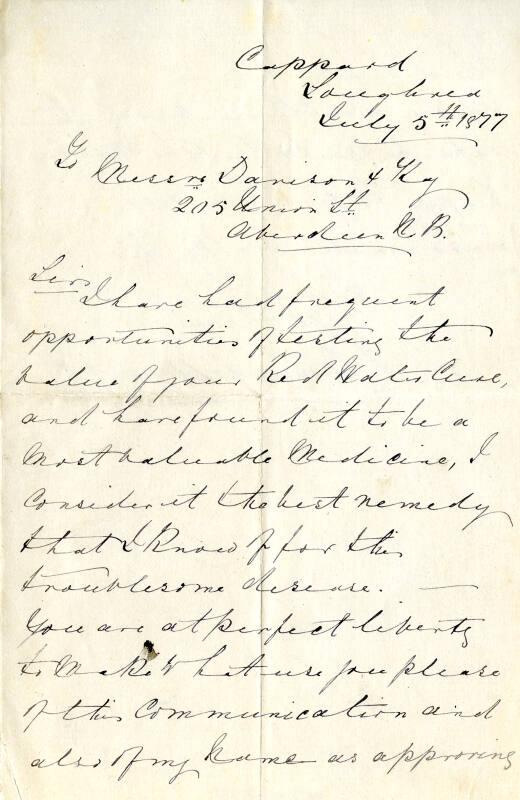 Cappard
Loughrea
July 5th 1877
To
Messrs Davison & Kay
205 Union St.
Aberdeen N.B.
Sirs
I have had frequent
opportunities of testing the
value of your Red Water Cure,
and have found it to be a
Most valuable Medicine, I
Consider it the best remedy
that I Know of for this
troublesome disease. —
You are at perfect liberty
to Make What use you please
of this Communication and
also of my Name as approving